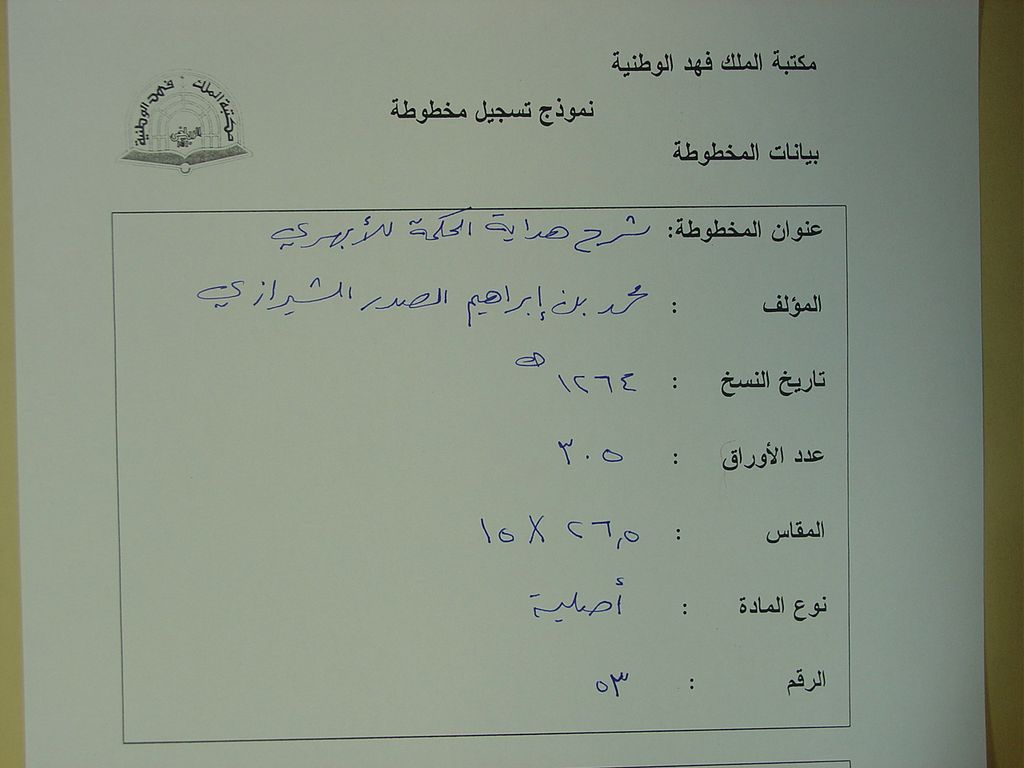 مكتبة الملك فهد الوطنية
نموذج تسجيل مخطوطة
بيانات المخطوطة
مكتبة الملك فهد الوطنية
عنوان المخطوطة: شرح هداية الحكمة للأبهري
المؤلف : محمد بن إبراهيم الصدر الشيرازي
تاريخ النسخ : ١٢٦٤ هـ
عدد الأوراق : ٣٠٥
المقاس : ٢٦,٥ X ١٥
نوع المادة : أصلية
الرقم : ٥٣